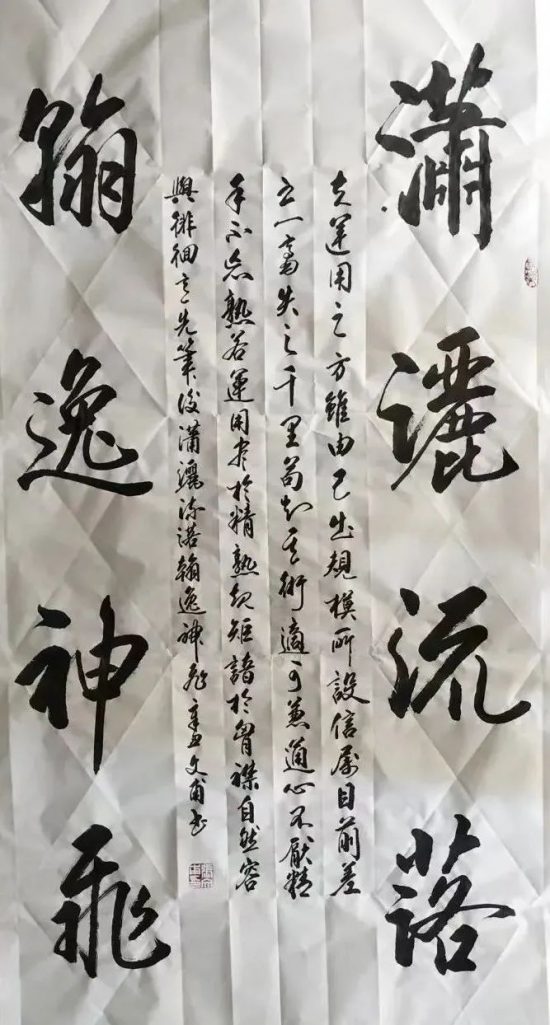 瀟灑流落
夫運用之方雖由己出規模所設信屬目前差
之一毫失之千里苟知其術適可兼通心不厭精
手不忘熟若運用盡於精熟規矩諳於胷襟自然容
與徘徊意先筆後瀟灑流落翰逸神飛辛丑文甫书
翰逸神飛